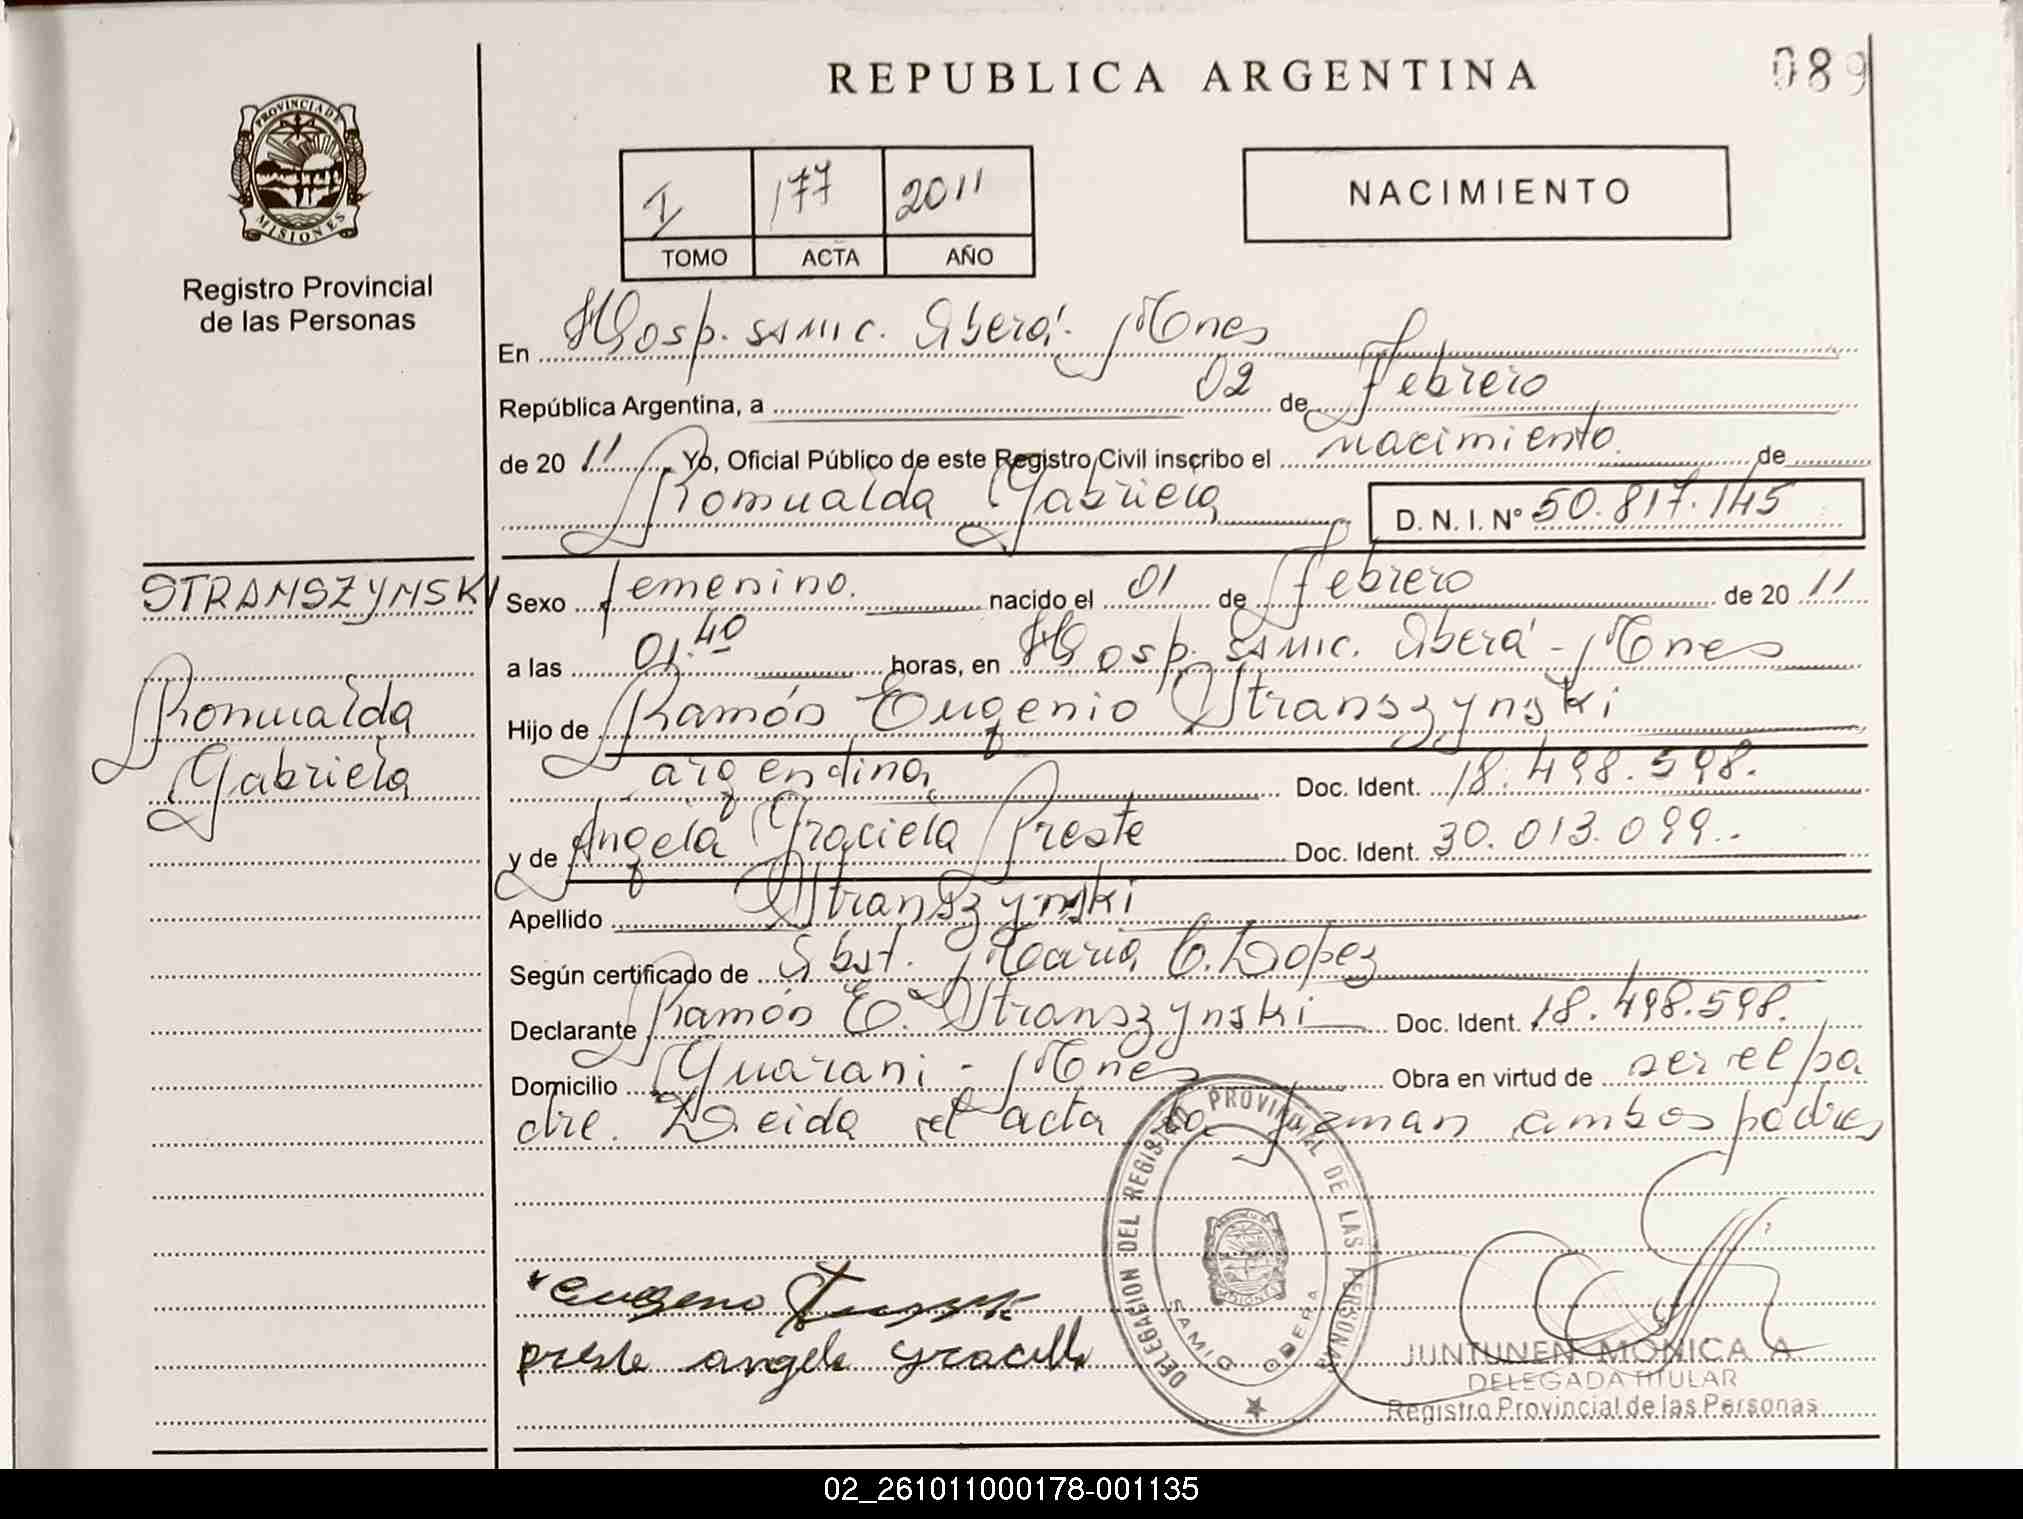 REPUBLICA ARGENTINA
089
PROVINCIA DE
MISIONES
Registro Provincial
de las Personas
I 177 2011
TOMO ACTA AÑO
NACIMIENTO
En Hosp. SAMIC. Oberá - Mnes
República Argentina, a 02 de Febrero
de 2011 Yo, Oficial Público de este Registro Civil inscribo el nacimiento de
Romualda Gabriela D. N. I. Nº 50.817.145
STRANSZYNSKI
Romualda
Gabriela
Sexo femenino. nacido el 01 de Febrero de 2011
a las 01.40 horas, en Hosp. SAMIC. Oberá - Mnes
Hijo de Ramón Eugenio Stranszynski
argentina Doc. Ident. 18.498.598.
y de Angela Graciela Preste Doc. Ident. 30.013.099.
Apellido Stranszynski
Según certificado de Obst. Maria C. Lopez
Declarante Ramón E. Stranszynski Doc. Ident. 18.498.598.
Domicilio Guarani - Mnes Obra en virtud de ser el pa
dre. Leida el acta la firman ambos padres
DELEGACION DEL REGISTRO PROVINCIAL DE LAS PERSONAS
SAMIC OBERA
MISIONES
Eugenio
preste angela graciela
JUNTUNEN MONICA A
DELEGADA TITULAR
Registro Provincial de las Personas
02_261011000178-001135